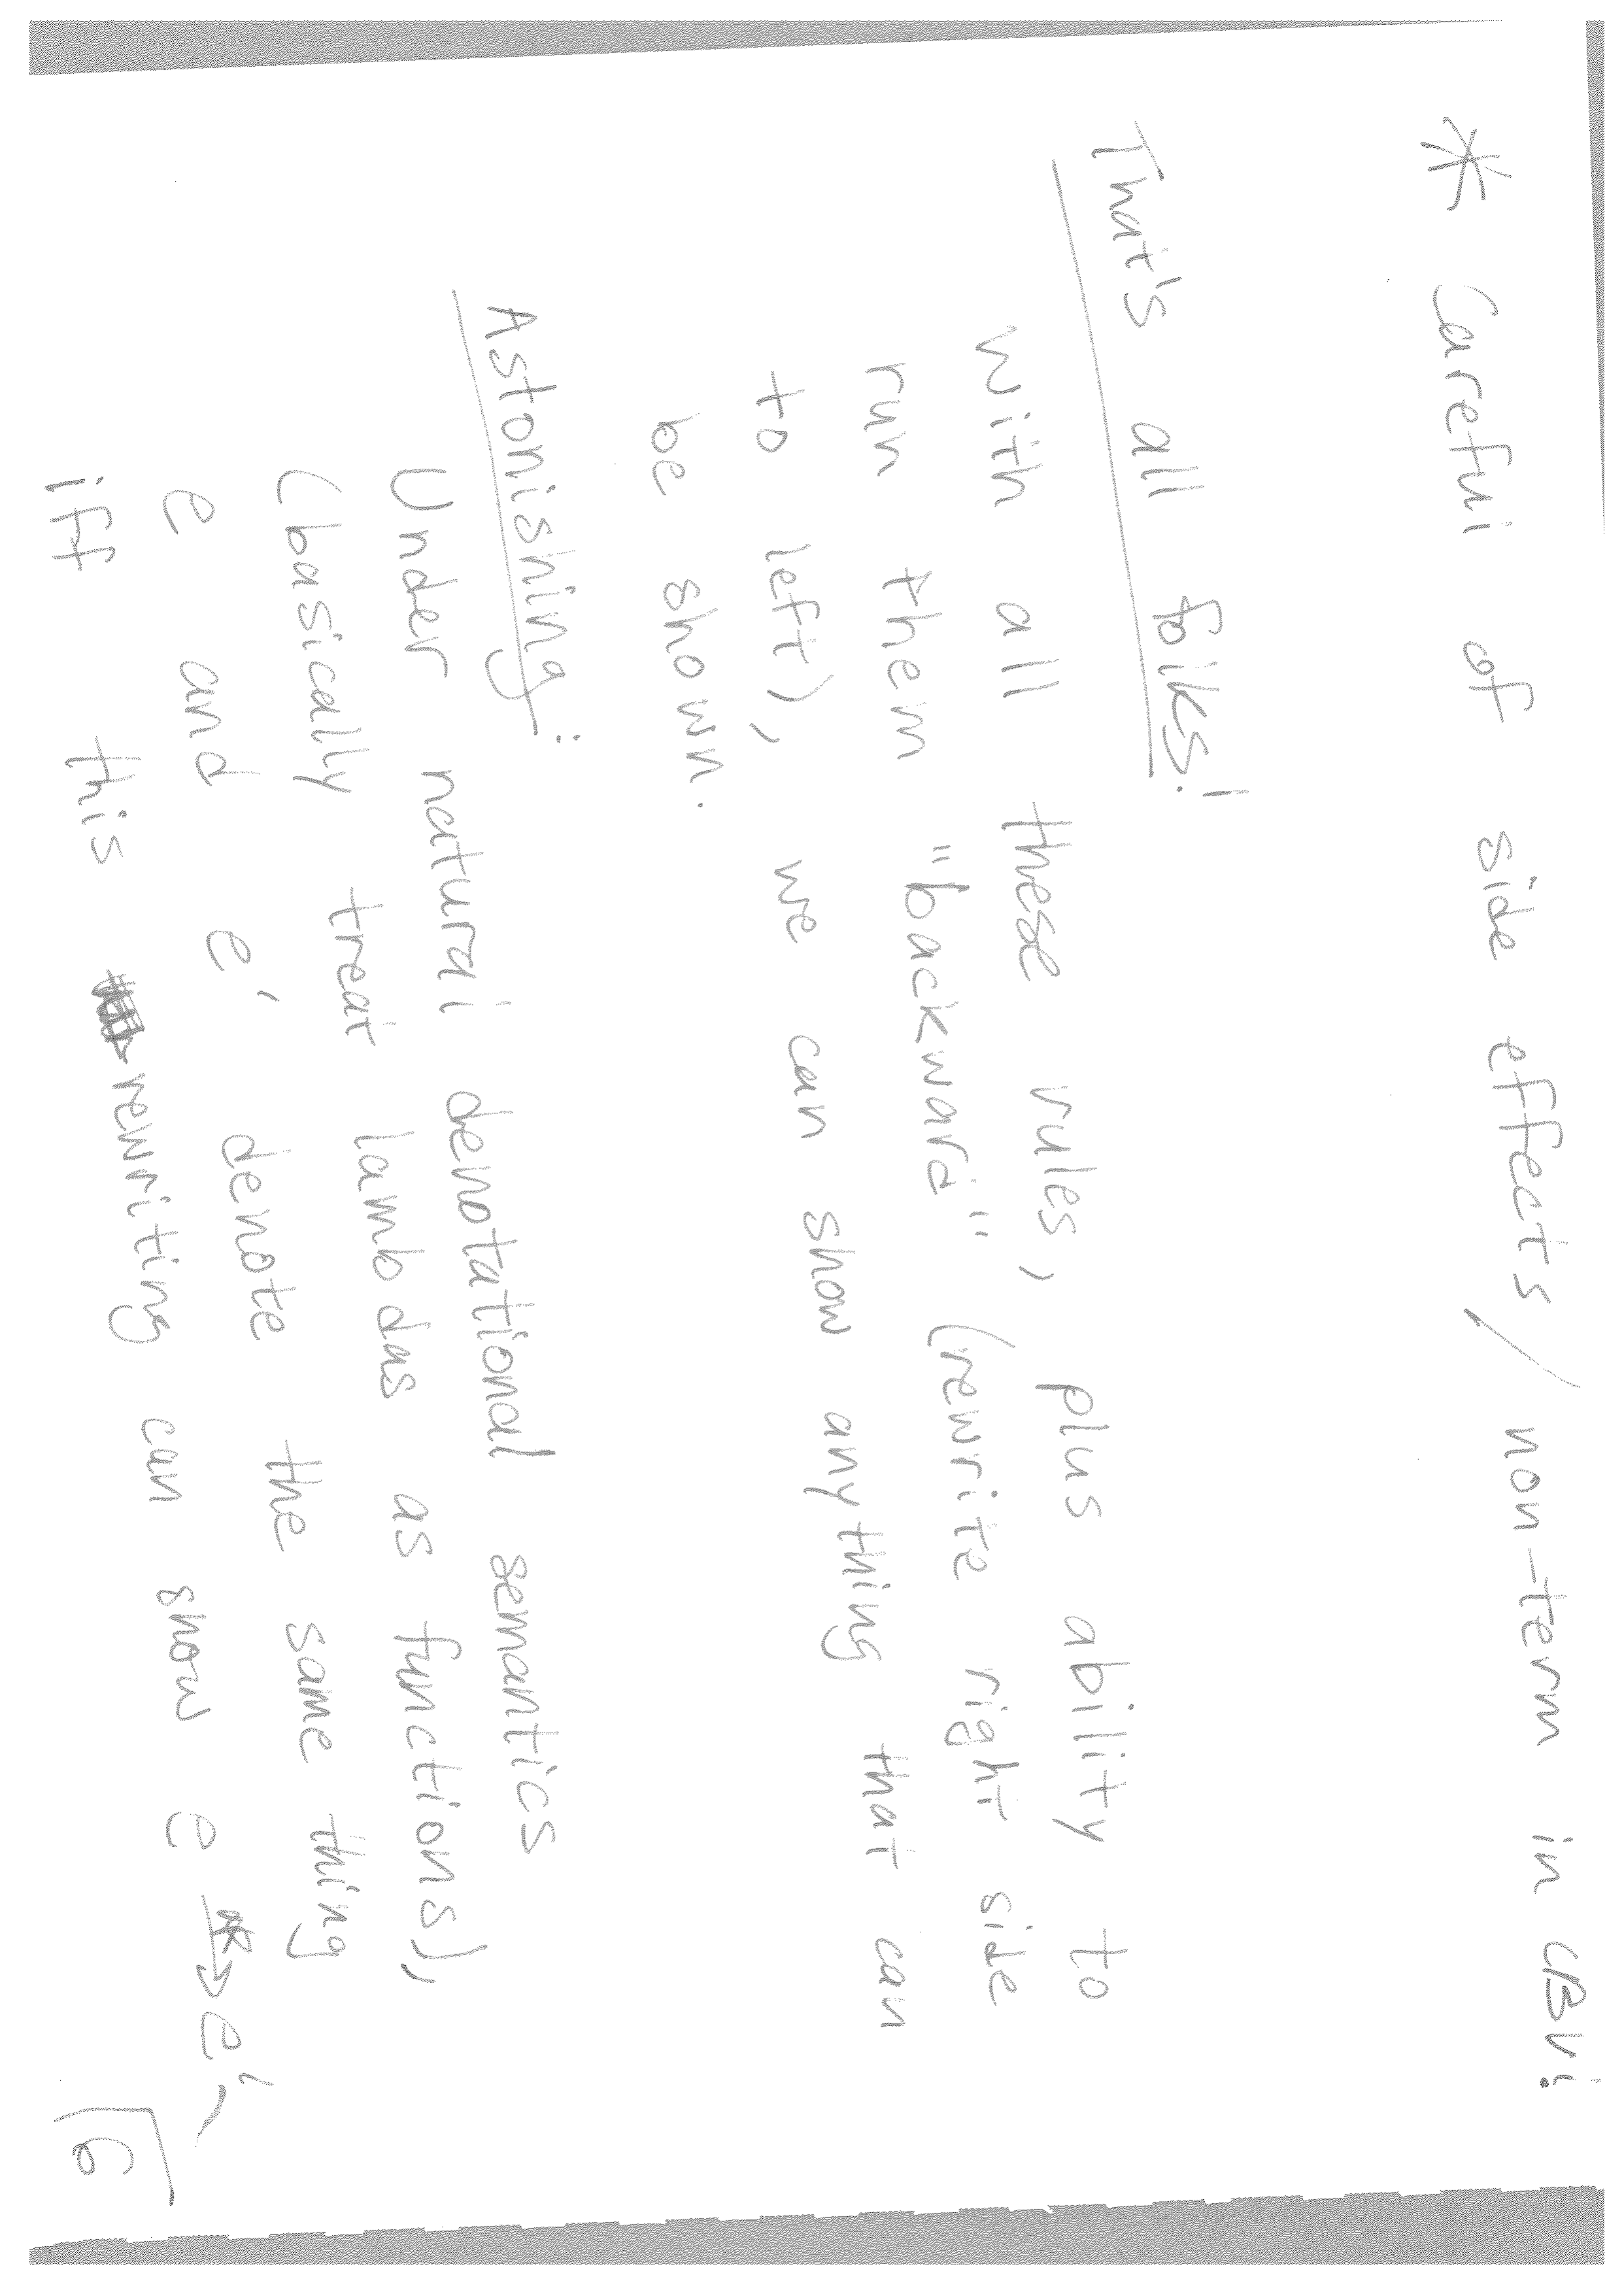 * Careful of side effects/non-term in CBV!
That's all folks!
With all these rules, plus ability to
run them "backward" (rewrite right side
to left), we can show anything that can
be shown.
Astonishing:
Under natural denotational semantics
(basically treat lambdas as functions),
e and e' denote the same thing
iff this rewriting can show e →* e'
6